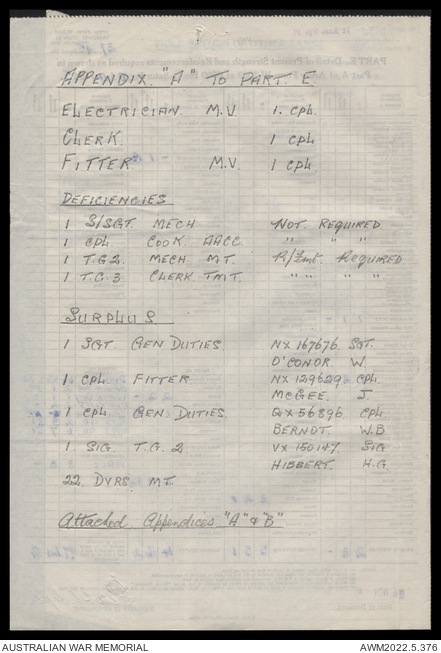 APPENDIX "A" TO PART E
ELECTRICIAN M.V. 1. CPL
CLERK 1 CPL
FITTER M.V. 1 CPL
DEFICIENCIES
1 S/SGT. MECH NOT REQUIRED
1 CPL COOK AACC " " "
1 T.G.2. MECH MT. R/Fmt. Required
1 T.G.3 CLERK TMT. " " " "
SURPLUS
1 SGT GEN DUTIES NX 167676 SGT.
O'CONOR W.
1 CPL FITTER NX 129629 CPL
McGEE. J.
1 CPL GEN DUTIES QX 56896 CPL
BERNDT. W.B
1. SIG. T.G. 2 VX 150147. SIG
HIBBERT. H.G.
22. DVRS. MT
Attached Appendices "A" & "B"
AUSTRALIAN WAR MEMORIAL AWM2022.5.376